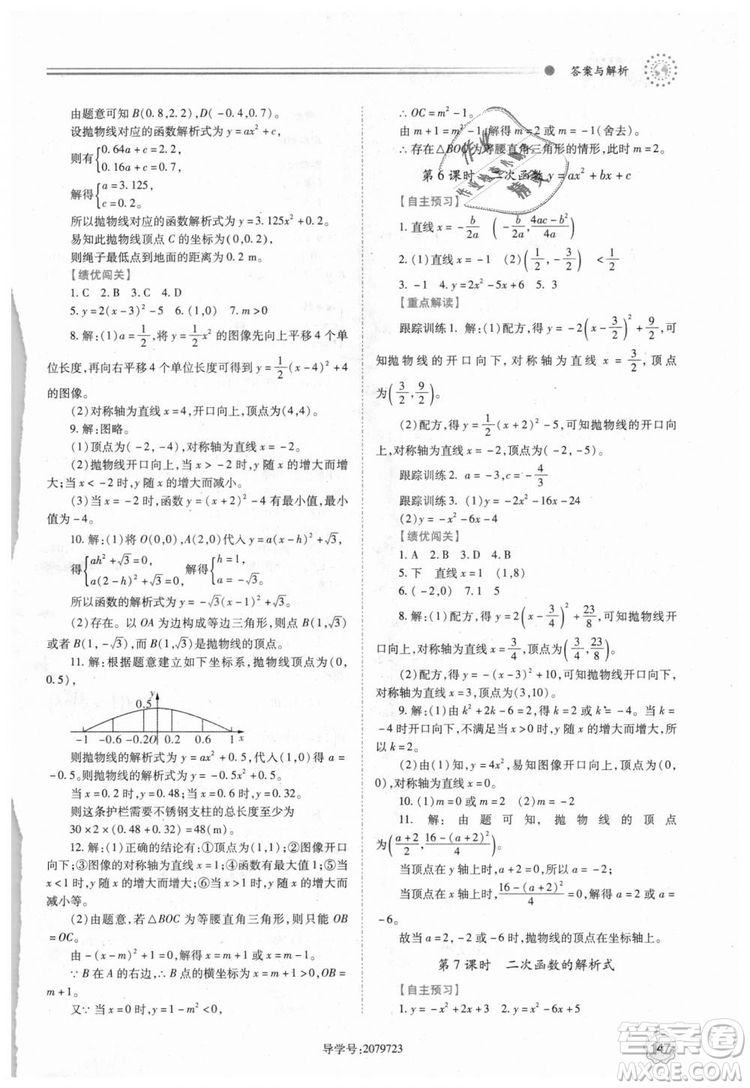 答案与解析
由题意可知 B(0.8,2.2),D(-0.4,0.7).
设抛物线对应的函数解析式为 y=ax²+c,
则有{0.64a+c=2.2,
0.16a+c=0.7,
解得{a=3.125,
c=0.2.
所以抛物线对应的函数解析式为 y=3.125x²+0.2.
易知此抛物线顶点 C 的坐标为(0,0.2).
则绳子最低点到地面的距离为 0.2 m.
【绩优闯关】
1. C 2. B 3. C 4. D
5. y=2(x-3)²-5 6. (1,0) 7. m>0
8. 解:(1)a=1/2,将 y=1/2x² 的图像先向上平移 4 个单
位长度,再向右平移 4 个单位长度得到 y=1/2(x-4)²+4
的图像.
(2)对称轴为直线 x=4,开口向上,顶点为(4,4).
9. 解:图略.
(1)顶点为(-2,-4),对称轴为直线 x=-2.
(2)抛物线开口向上,当 x>-2 时,y 随 x 的增大而增
大;当 x<-2 时,y 随 x 的增大而减小.
(3)当 x=-2 时,函数 y=(x+2)²-4 有最小值,最小
值为-4.
10. 解:(1)将 O(0,0),A(2,0)代入 y=a(x-h)²+√3,
得{ah²+√3=0,
a(2-h)²+√3=0,
解得{h=1,
a=-√3.
所以函数的解析式为 y=-√3(x-1)²+√3.
(2)存在. 以 OA 为边构成等边三角形,则 B(1,√3)
或者 B(1,-√3),而 B(1,√3)是抛物线的顶点.
11. 解:根据题意建立如下坐标系,抛物线顶点为(0,
0.5),
y
0.5
-1 -0.6 -0.2 O 0.2 0.6 1 x
则抛物线的解析式为 y=ax²+0.5,代入(1,0)得 a=
-0.5,所以抛物线的解析式为 y=-0.5x²+0.5.
当 x=0.2 时,y=0.48;当 x=0.6 时,y=0.32.
则这条护栏需要不锈钢支柱的总长度至少为
30×2×(0.48+0.32)=48(m).
12. 解:(1)正确的结论有:①顶点为(1,1);②图像开口
向下;③图像的对称轴为直线 x=1;④函数最大值为 1;⑤当
x<1 时,y 随 x 的增大而增大;⑥当 x>1 时,y 随 x 的增大而
减小等.
(2)由题意,若△BOC 为等腰直角三角形,则只能 OB
=OC.
由-(x-m)²+1=0,解得 x=m+1 或 x=m-1.
∵B 在 A 的右边,∴B 点的横坐标为 x=m+1>0.
又∵当 x=0 时,y=1-m²<0,
∴OC=m²-1.
由 m+1=m²-1,解得 m=2 或 m=-1(舍去).
∴存在△BOC 为等腰直角三角形的情形,此时 m=2.
第 6 课时 二次函数 y=ax²+bx+c
【自主预习】
1. 直线 x=-b/2a (-b/2a,(4ac-b²)/4a)
2. (1)直线 x=1/2 (2)(1/2,-1/2) (3)≤1/2
3. (1,2) 4. y=2x²-5x+6 5. 3
【重点解读】
跟踪训练 1. 解:(1)配方,得 y=-2(x-3/2)²+9/2,
可知抛物线的开口向下,对称轴为直线 x=3/2,顶点
为(3/2,9/2).
(2)配方,得 y=1/2(x+2)²-5,可知抛物线的开口向
上,对称轴为直线 x=-2,顶点为(-2,-5).
跟踪训练 2. a=-1/3,c=-4/3
跟踪训练 3. (1)y=2x²+16x-24
(2)y=-x²-6x-4
【绩优闯关】
1. A 2. B 3. D 4. D
5. 下 直线 x=1 (1,8)
6. (-2,0) 7. 1 5
8. 解:(1)配方,得 y=2(x-3/4)²+23/8,可知抛物线开
口向上,对称轴为直线 x=3/4,顶点为(3/4,23/8).
(2)配方,得 y=-(x-3)²+10,可知抛物线开口向下,
对称轴为直线 x=3,顶点为(3,10).
9. 解:(1)由 k²+2k-6=2,解得 k=2 或 k=-4. 当 k=
-4 时开口向下,不满足当 x>0 时,y 随 x 的增大而增大,所
以 k=2.
(2)由(1)知,y=4x²,开口向上,对称轴为 y 轴,顶点为(0,
0). 当 x<0 时,y 随 x 的增大而减小.
10. (1)m=2 (2)m=-6
11. 解:由题可知,抛物线的顶点为
((a+2)/2,(16-(a+2)²)/4),
当顶点在 y 轴上时,(a+2)/2=0,得 a=-2;
当顶点在 x 轴上时,(16-(a+2)²)/4=0,得 a=2 或 a=
-6.
故当 a=-2,2,-6 时,抛物线的顶点在坐标轴上.
第 7 课时 二次函数的解析式
【自主预习】
1. y=-x²+2x+3 2. y=x²-2x
导学号:2079723
147
答案圈
MXQE.COM